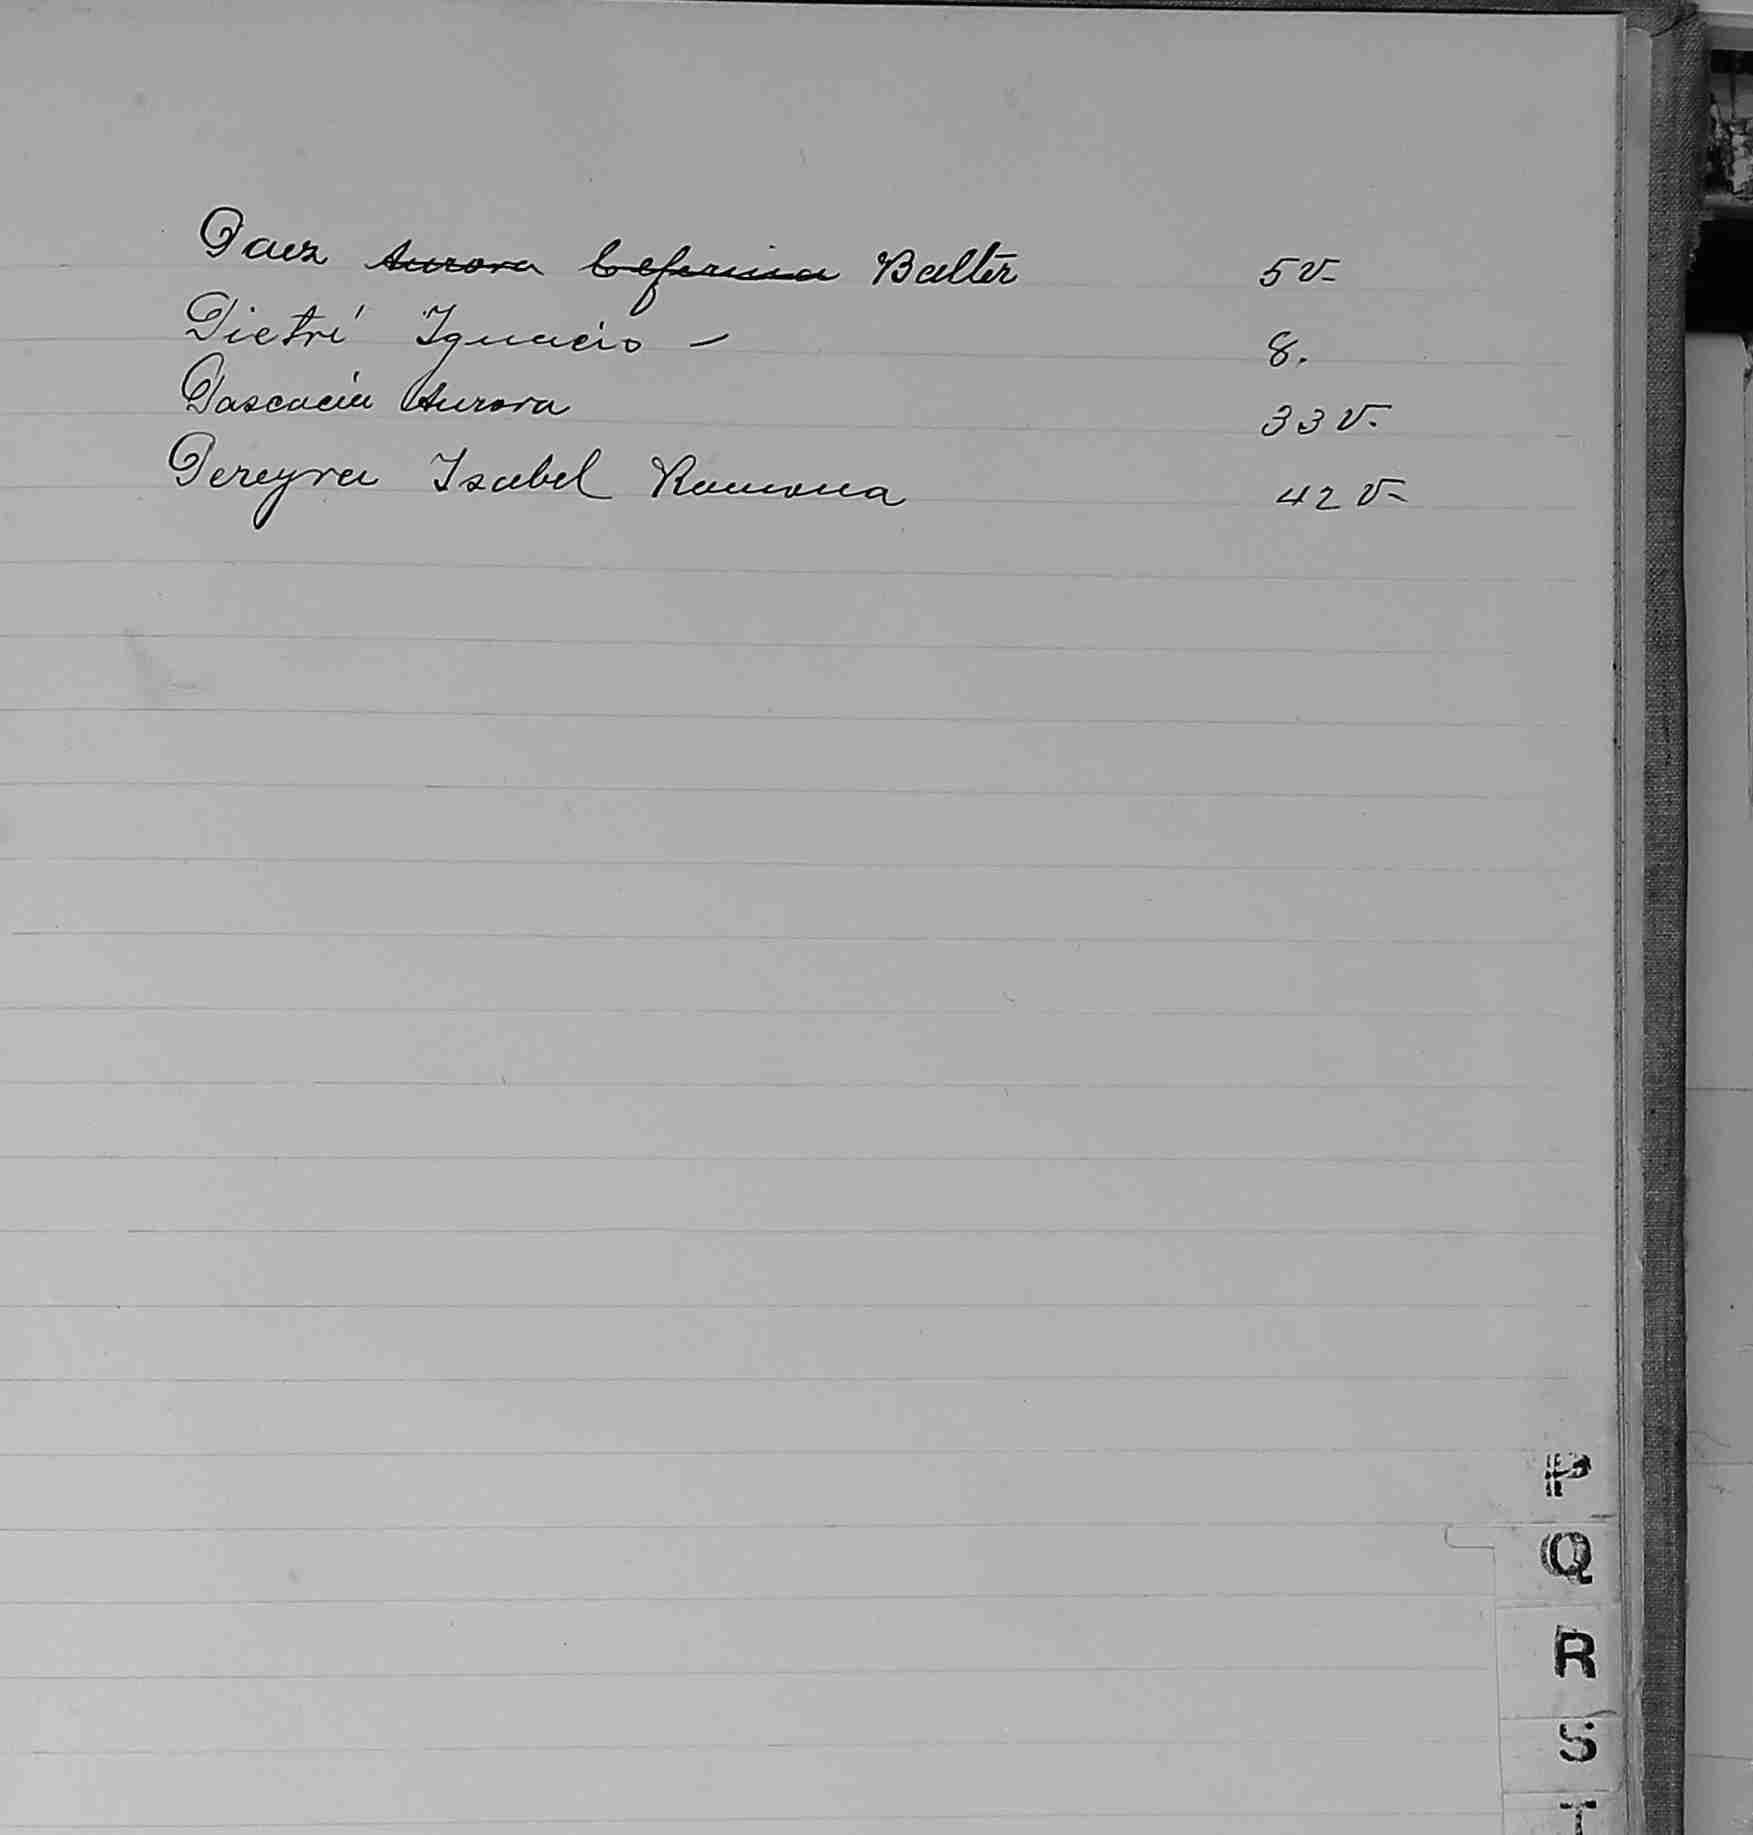 Paez Aurora Ceferina Balter 5 v.
Pietri Ignacio - 8.
Aurora 33 v.
Pereyra Isabel Ramona 42 v.
P
Q
R
S
T